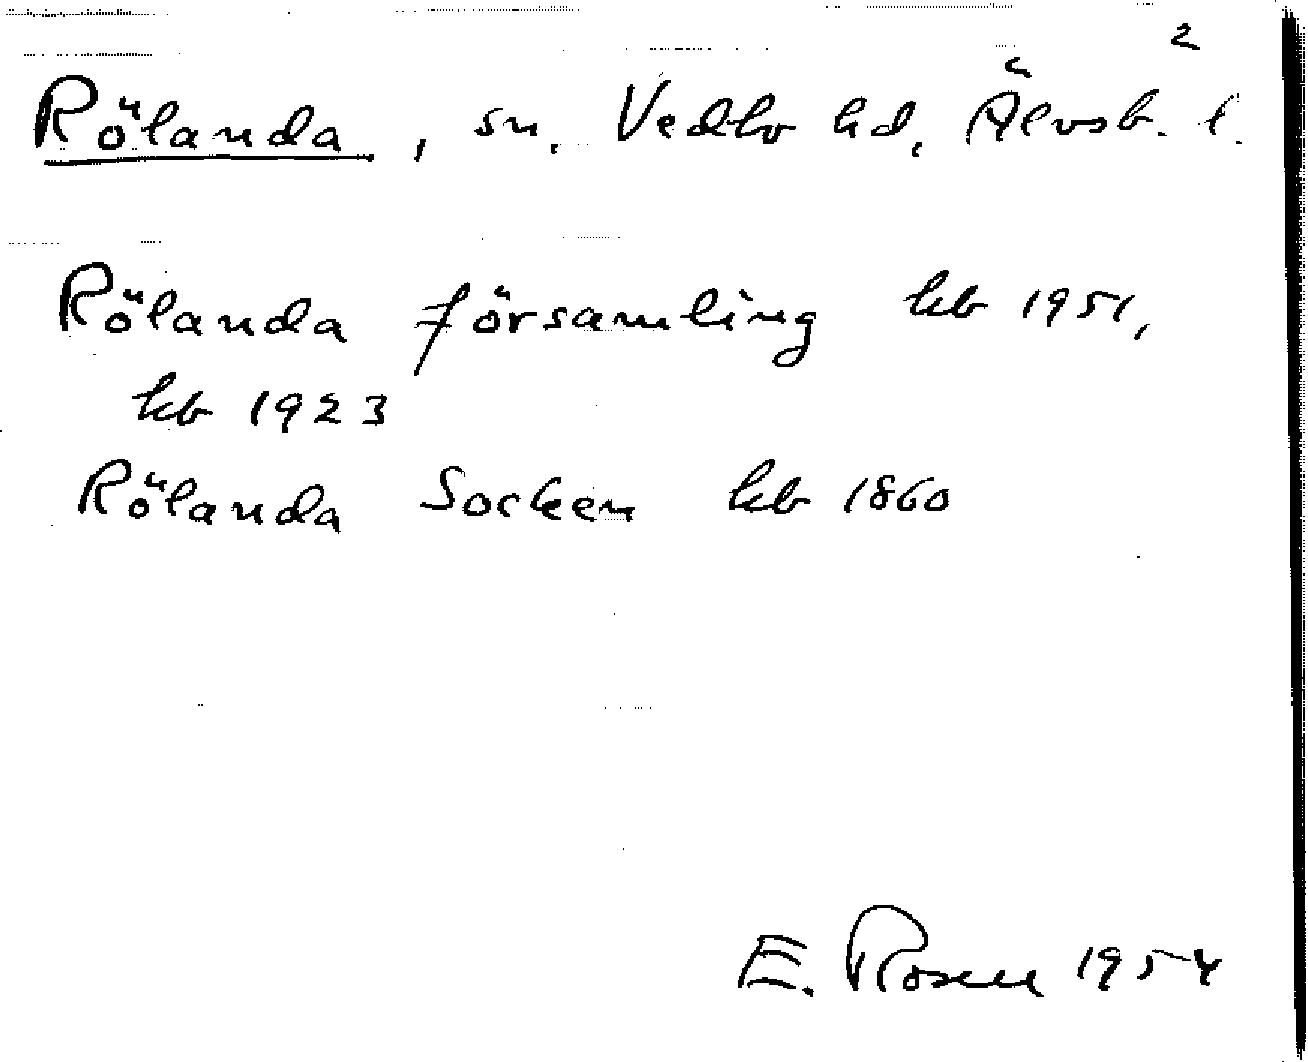 2
Rölanda, sn. Vedbo hd, Älvsb. l.
Rölanda församling kb 1951,
kb 1923
Rölanda Socken kb 1860
E. Rosell 1954